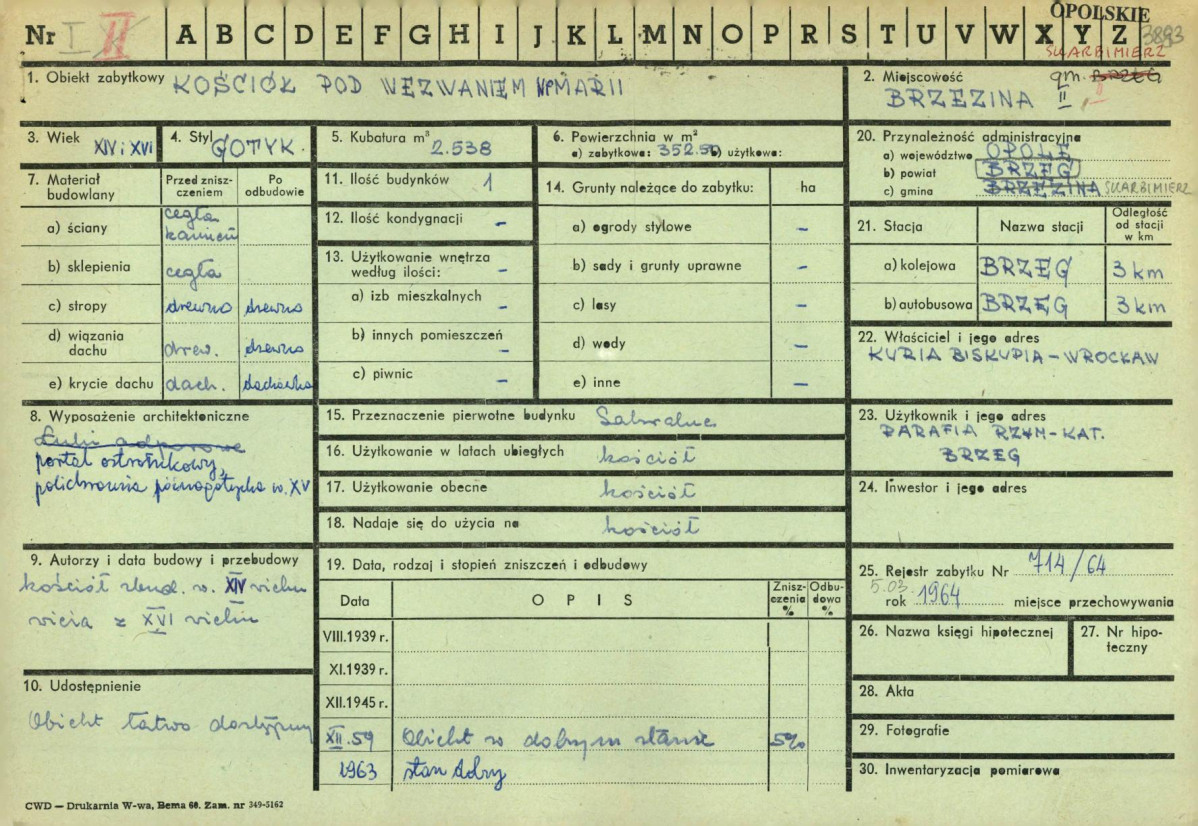 OPOLSKIE
Nr I II A B C D E F G H I J K L M N O P R S T U V W X Y Z 3893
SKARBIMIERZ
1. Obiekt zabytkowy KOŚCIÓŁ POD WEZWANIEM NPMARII
2. Miejscowość gm. BRZEG
BRZEZINA II
3. Wiek XIV i XVI
4. Styl GOTYK.
5. Kubatura m³ 2.538
6. Powierzchnia w m²
a) zabytkowa: 352.50 b) użytkowa:
20. Przynależność administracyjna
a) województwo OPOLE
b) powiat BRZEG
c) gmina BRZEZINA SKARBIMIERZ
7. Materiał budowlany
Przed znisz-
czeniem
Po
odbudowie
a) ściany cegła
kamień
b) sklepienia cegła
c) stropy drewno drewno
d) wiązania
dachu drew. drewno
e) krycie dachu dach. dachówka
11. Ilość budynków 1
12. Ilość kondygnacji –
13. Użytkowanie wnętrza
według ilości: –
a) izb mieszkalnych –
b) innych pomieszczeń –
c) piwnic –
14. Grunty należące do zabytku: ha
a) ogrody stylowe –
b) sady i grunty uprawne –
c) lasy –
d) wody –
e) inne –
21. Stacja Nazwa stacji Odległość
od stacji
w km
a) kolejowa BRZEG 3 km
b) autobusowa BRZEG 3 km
22. Właściciel i jego adres
KURIA BISKUPIA – WROCŁAW
8. Wyposażenie architektoniczne
portal ostrołukowy,
polichromia późnogotycka w. XV
15. Przeznaczenie pierwotne budynku Sakralne
16. Użytkowanie w latach ubiegłych kościół
17. Użytkowanie obecne kościół
18. Nadaje się do użycia na kościół
23. Użytkownik i jego adres
PARAFIA RZYM-KAT.
BRZEG
24. Inwestor i jego adres
9. Autorzy i data budowy i przebudowy
kościół zbud. w. XIV wieku
wieża z XVI wieku
10. Udostępnienie
Obiekt łatwo dostępny
19. Data, rodzaj i stopień zniszczeń i odbudowy
Data OPIS Znisz-
czenia
% Odbu-
dowa
%
VIII.1939 r.
XI.1939 r.
XII.1945 r.
XII.59 Obiekt w dobrym stanie 5%
1963 stan dobry
25. Rejestr zabytku Nr 714/64
5.03
rok 1964 miejsce przechowywania
26. Nazwa księgi hipotecznej
27. Nr hipo-
teczny
28. Akta
29. Fotografie
30. Inwentaryzacja pomiarowa
CWD — Drukarnia W-wa, Bema 60. Zam. nr 349-5162